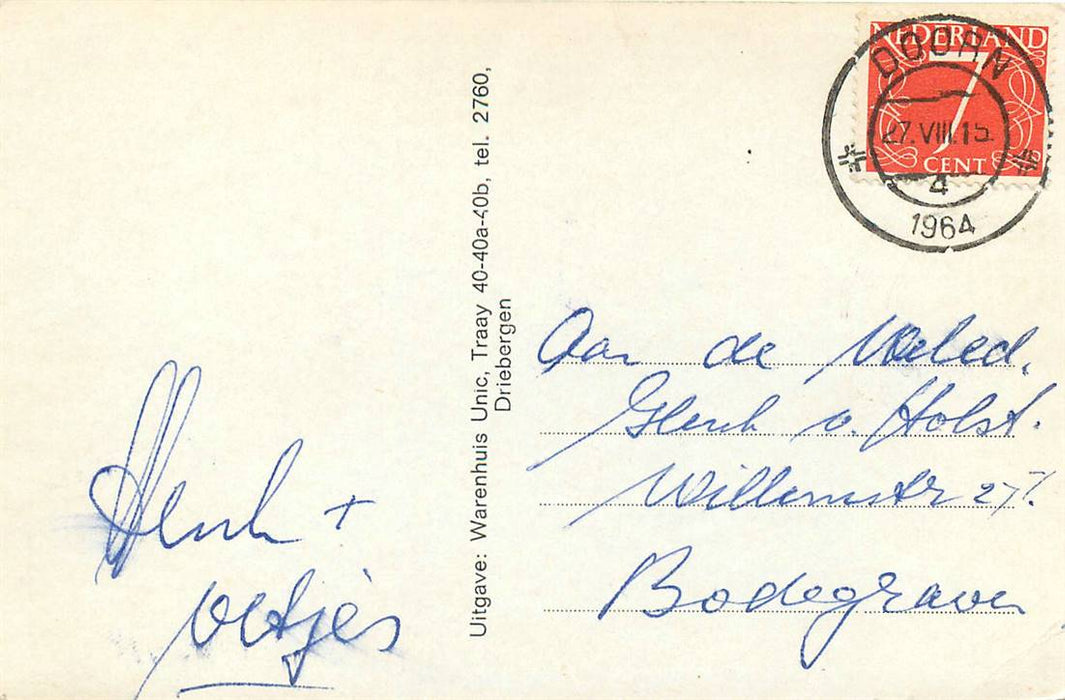 NEDERLAND
7
CENT
DOORN
27.VIII.15
4
1964
Uitgave: Warenhuis Unic, Traay 40-40a-40b, tel. 2760,
Driebergen
Aan de Weled.
v. Holst.
Willemstr 27
Bodegraven
Henk +